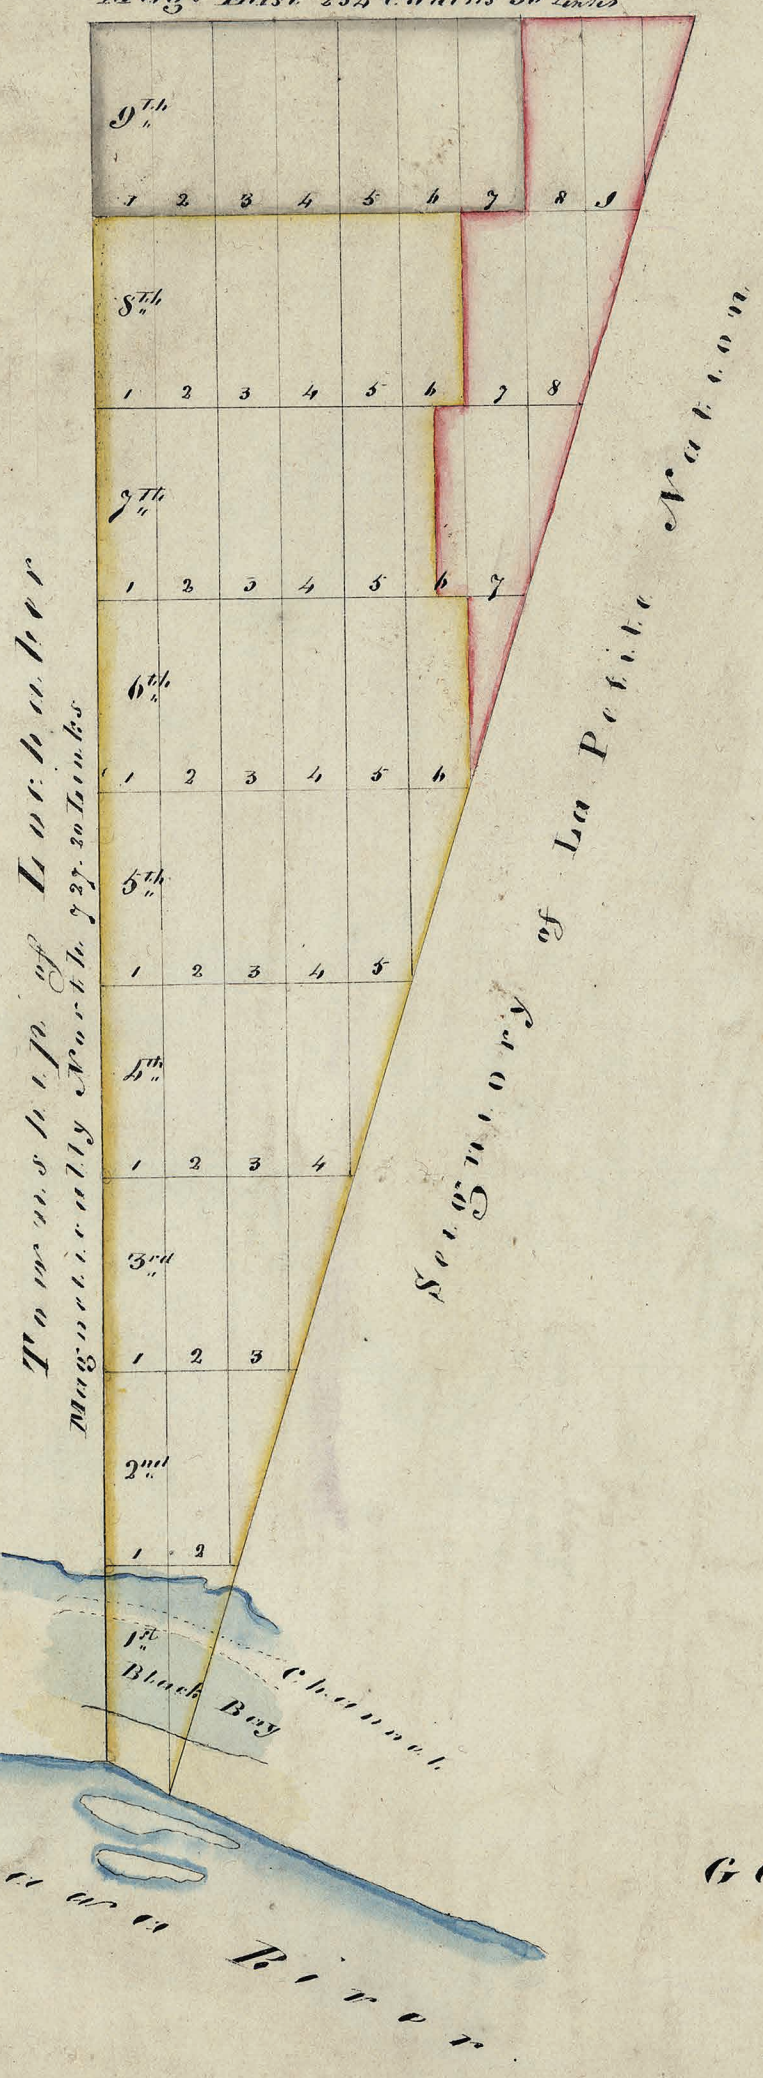 East 234 Chains 50 Links
9th
1 2 3 4 5 6 7 8 9
8th
1 2 3 4 5 6 7 8
7th
1 2 3 4 5 6 7
6th
1 2 3 4 5 6
5th
1 2 3 4 5
4th
1 2 3 4
3rd
1 2 3
2nd
1 2
1st
Black Bay
Channel
Township of Lochaber
Magnetically North 727.20 Links
Seigniory of La Petite Nation
awa River